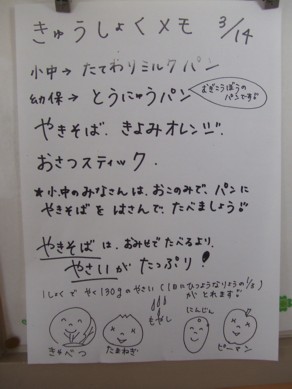 きゅうしょくメモ 3/14
小中→たてわりミルクパン
幼保→とうにゅうパン
むぎこうぼうのパンです
やきそば.きよみオレンジ.
おさつスティック.
★小中のみなさんは、おこのみで、パンに
やきそばをはさんで、たべましょう!!
やきそばは、おみせでたべるより、
やさいがたっぷり!
1しょくでやく130gのやさい(1日にひつようなりょうの1/2)
がとれます
きゃべつ
たまねぎ
もやし
にんじん
ピーマン